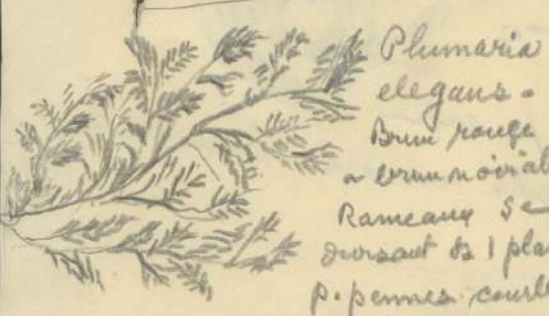 Plumaria
elegans -
Brun rouge
a brun noirat
Rameaux se
divisant ds 1 pla
p. pennes courb